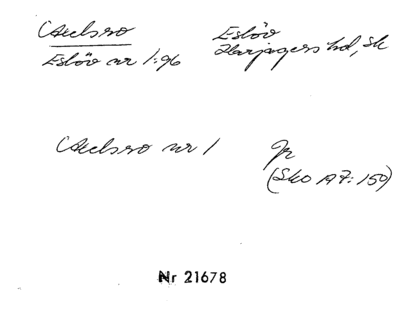 Aulsro Eslöv
Eslöv nr 1:96 Harjagers hd, Sk
Aulsro nr 1 Jr
(Sko A7:150)
Nr 21678